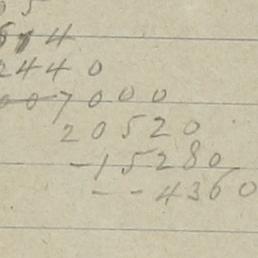 05
574
2440
007000
20520
-15280
--4360